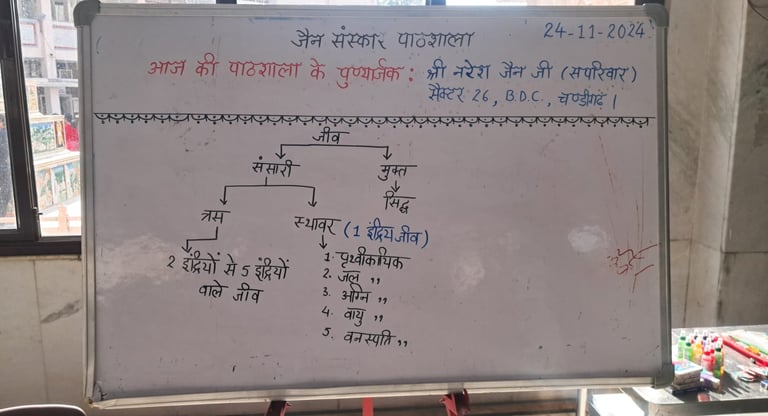 जैन संस्कार पाठशाला
24-11-2024
आज की पाठशाला के पुण्यार्जक : श्री नरेश जैन जी (सपरिवार)
सैक्टर 26, B.D.C., चण्डीगढ़ ।
जीव
संसारी मुक्त
सिद्ध
त्रस स्थावर (1 इंद्रिय जीव)
2 इंद्रियों से 5 इंद्रियों
वाले जीव
1. पृथ्वीकायिक
2. जल ,,
3. अग्नि ,,
4. वायु ,,
5. वनस्पति ,,